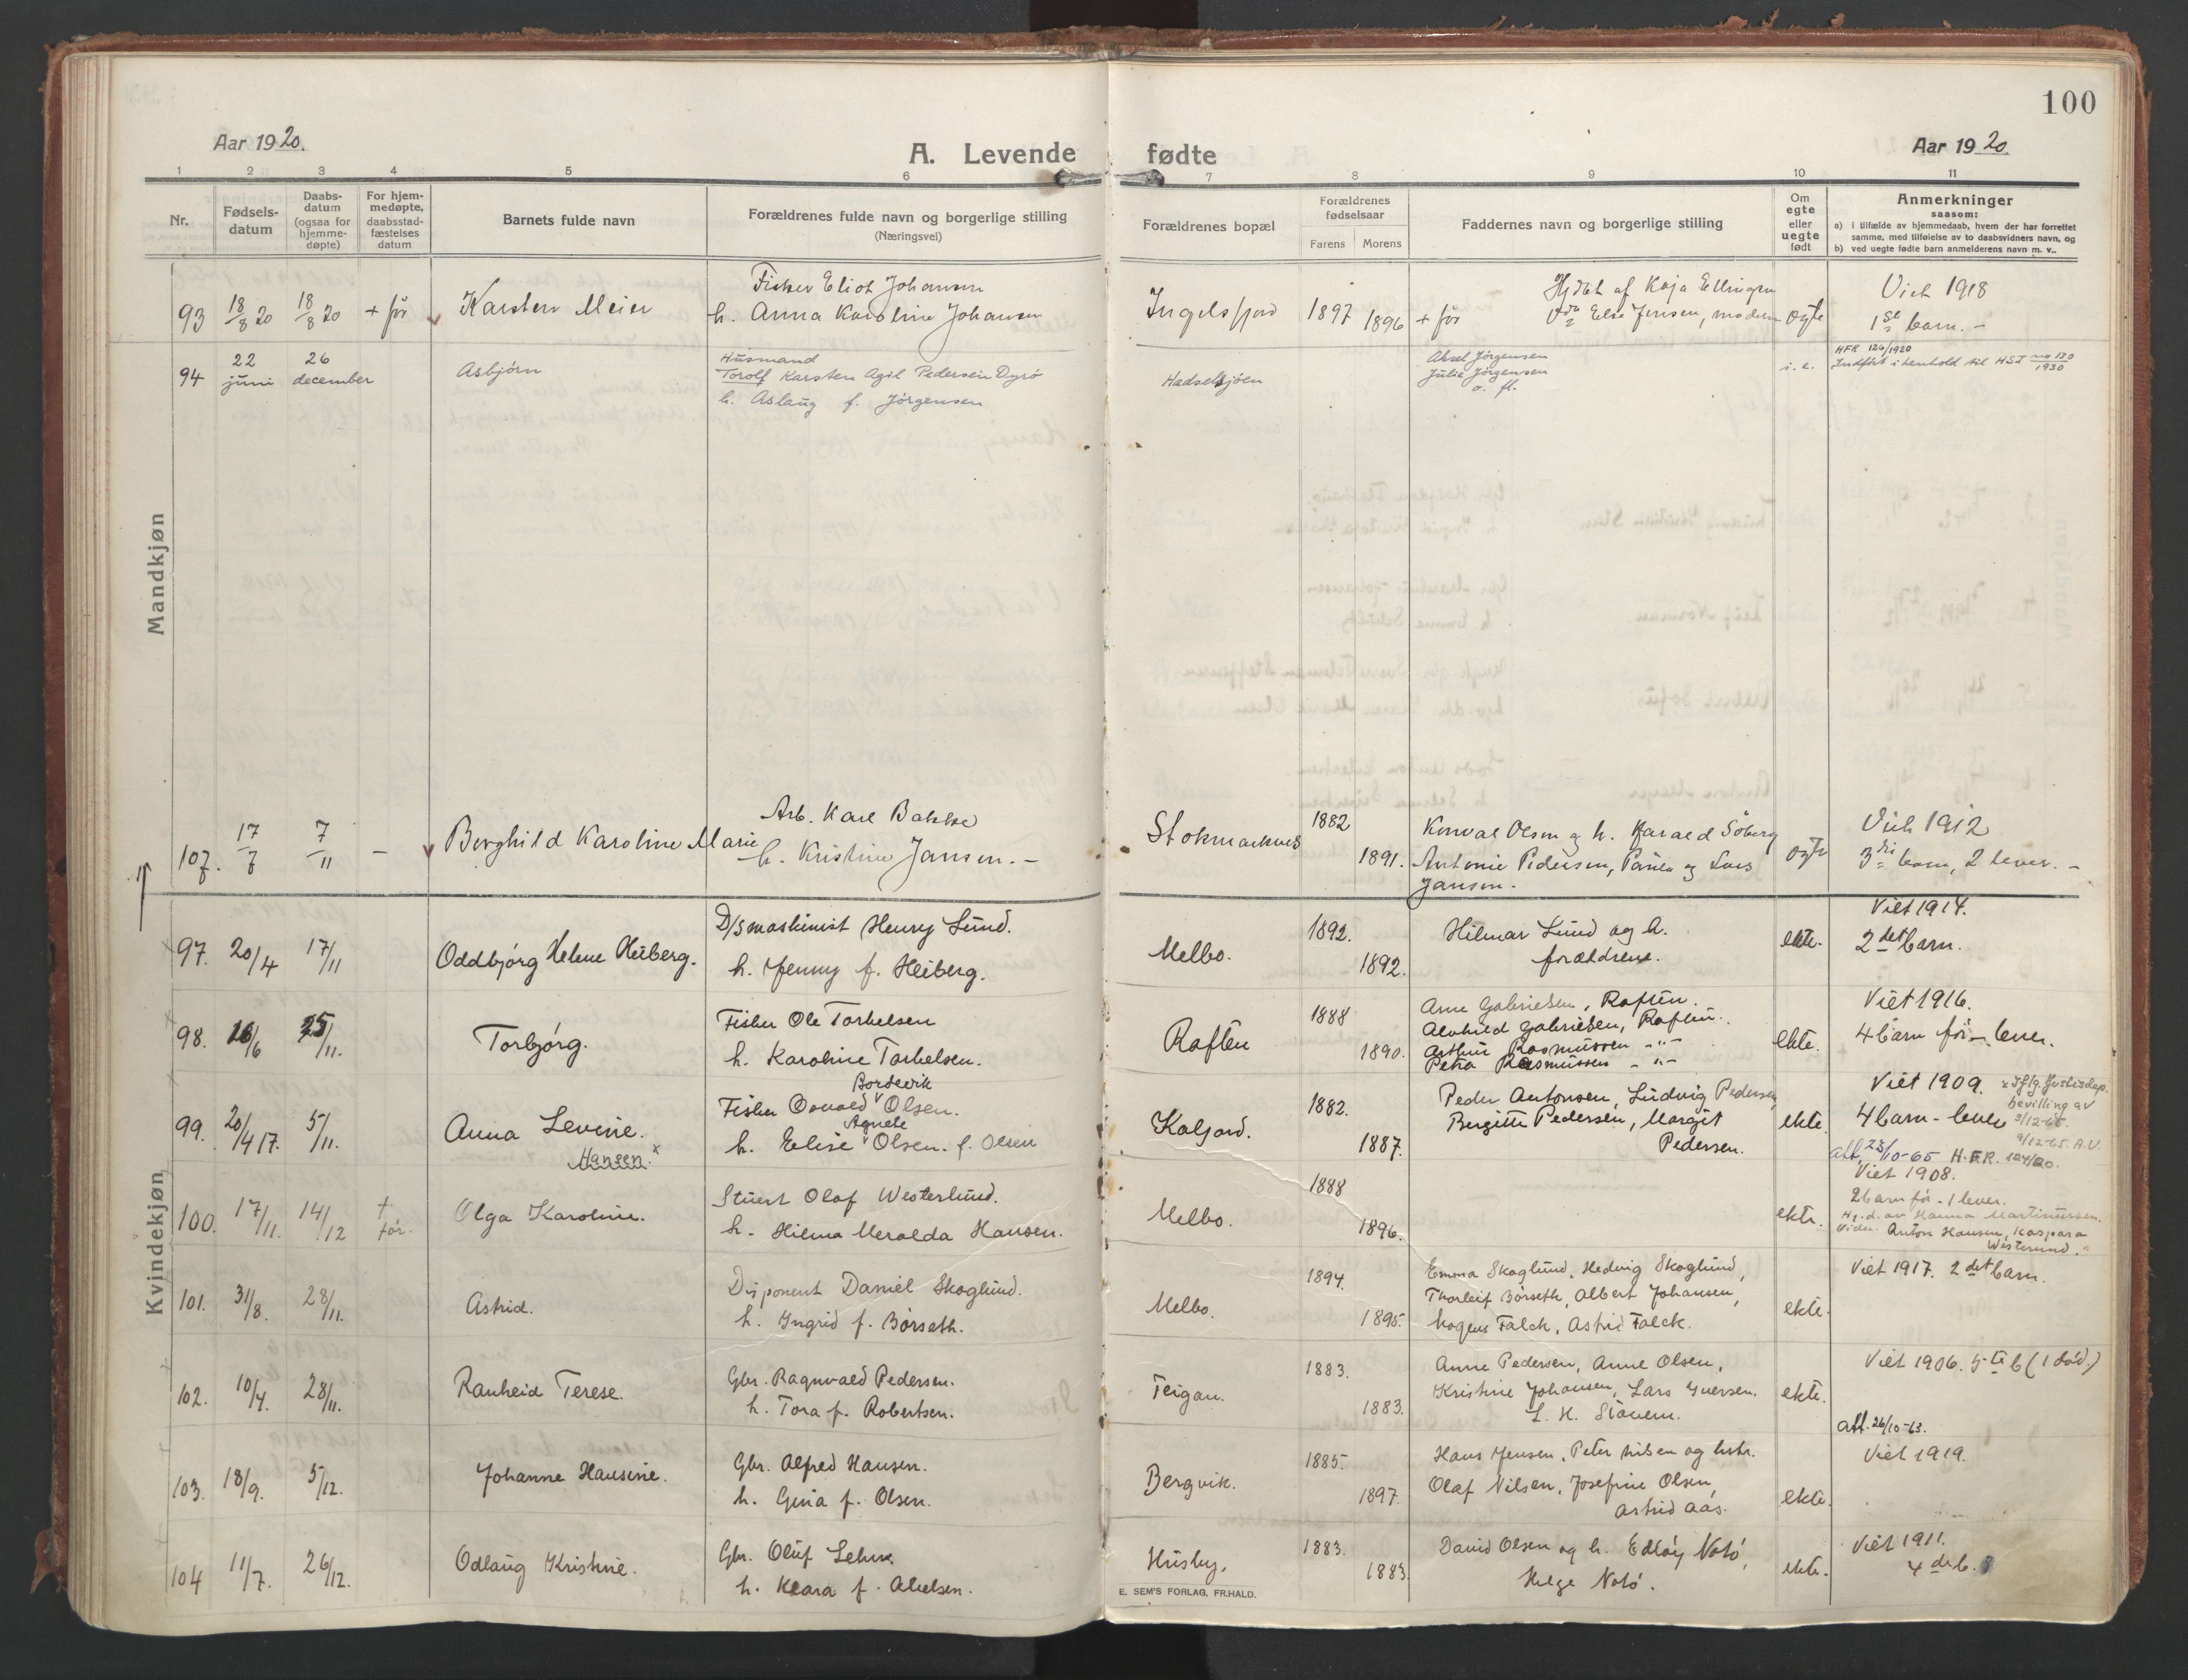 100
Aar 1920.
A. Levende fødte
Aar 1920
1 2 3 4 5 6 7 8 9 10 11
Nr.
Fødsels-
datum
Daabs-
datum
(ogsaa for
hjemme-
døpte)
For hjem-
medøpte,
daabsstad-
fæstelses
datum
Barnets fulde navn
Forældrenes fulde navn og borgerlige stilling
(Næringsvei)
Forældrenes bopæl
Forældrenes
fødselsaar
Farens Morens
Faddernes navn og borgerlige stilling
Om
egte
eller
uegte
født
Anmerkninger
saasom:
a) i tilfælde av hjemmedaab, hvem der har forrettet
samme, med tilføielse av to daabsvidners navn, og
b) ved uegte fødte barn anmelderens navn m. v..
Mandkjøn
93 18/8 20 18/8 20 + før Karsten Meier
Fisker Eliot Johansen
h. Anna Karoline Johansen
Ingelsfjord 1897 1896 + før
Hjdbt af Kaja Ellingsen
Else Jensen, moderen
egte
Viet 1918
1ste barn. -
94 22 juni 26 december Asbjørn
Husmand
Torolf Karsten Agil Pedersen Dyrø
h. Aslaug f. Jørgensen
Hadselsjøen
Aksel Jørgensen
Julie Jørgensen
o. fl.
i. e.
HFR 126/1920
Indført i henhold til HST no 170/1930
107. 17/7 7/11 - Borghild Karoline Marie
Arb. Karl Bakke
h. Kristine Jansen. -
Stokmarknes 1882 1891.
Konval Olsen og h. Harald Søberg
Antonie Pedersen, Paula og Lars
Jansen.
egte
Viet 1912
3die barn, 2 lever. -
Kvindekjøn
97. 20/4 17/11 Oddbjørg Helene Heiberg.
D/Smaskinist Henry Lund.
h. Jenny f. Heiberg.
Melbo. 1892. 1892.
Hilmar Lund og h.
forældrene.
ekte.
Viet 1914.
2det barn.
98. 16/6 25/11. Torbjørg.
Fisker Ole Torkelsen
h. Karoline Torkelsen.
Raften 1888 1890.
Arne Gabrielsen, Raften.
Alvhild Gabrielsen, Raften.
Arthur Rasmussen -"-
Petra Rasmussen -"-
ekte.
Viet 1916.
4 barn før - lever.
99. 20/4 17. 5/11. Anna Levine.
Hansen. x
Bordevik
Fisker Osvald v Olsen.
Agnete
h. Elise v Olsen. f. Olsen
Kaljord. 1882. 1887.
Peder Antonsen, Ludvig Pedersen,
Bergitte Pedersen, Margit
Pedersen.
ekte.
Viet 1909. x Iflg. Justisdep.
bevilling av
4 barn - lever 3/12-65.
9/12-65. A.V.
att. 23/10-65 H.F.R. 124/20.
100. 17/11. 14/12 † før. Olga Karoline.
Stuert Olaf Westerlund.
h. Hilma Meralda Hansen.
Melbo. 1888 1896.
ekte.
Viet 1908.
2 barn før - 1 lever.
Hj. d. av Hanna Martinussen.
Vidn. Anton Hansen, Kaspara
Westerlund.
101. 31/8. 28/11. Astrid.
Disponent Daniel Skoglund.
h. Ingrid f. Børseth.
Melbo. 1894. 1895.
Emma Skoglund, Hedvig Skoglund,
Thorleif Børseth, Albert Johansen,
Mogens Falck, Astrid Falck.
ekte.
Viet 1917. 2det barn.
102. 10/4. 28/11. Ranheid Terese.
Gbr. Ragnvald Pedersen.
h. Tora f. Robertsen.
Teigan. 1883. 1883.
Anne Pedersen, Anne Olsen,
Kristine Johansen, Lars Iversen.
L. H. Staven.
ekte.
Viet 1906. 5te b (1 død.)
att. 26/10-63.
103. 18/9. 5/12. Johanne Hansine.
Gbr. Alfred Hansen.
h. Gina f. Olsen.
Bergvik. 1885. 1897.
Hans Jensen, Peter Nilsen og hstr.
Olaf Nilsen, Josefine Olsen,
Astrid Aas.
ekte.
Viet 1919.
104 11/7. 26/12. Odlaug Kristine.
Gbr. Oluf
h. Klara f. Akelsen.
Husby. 1883. 1883.
David Olsen og h. Edløy Notø,
Helge Notø.
ekte.
Viet 1911.
4de b.
E. SEM'S FORLAG, FR.HALD.